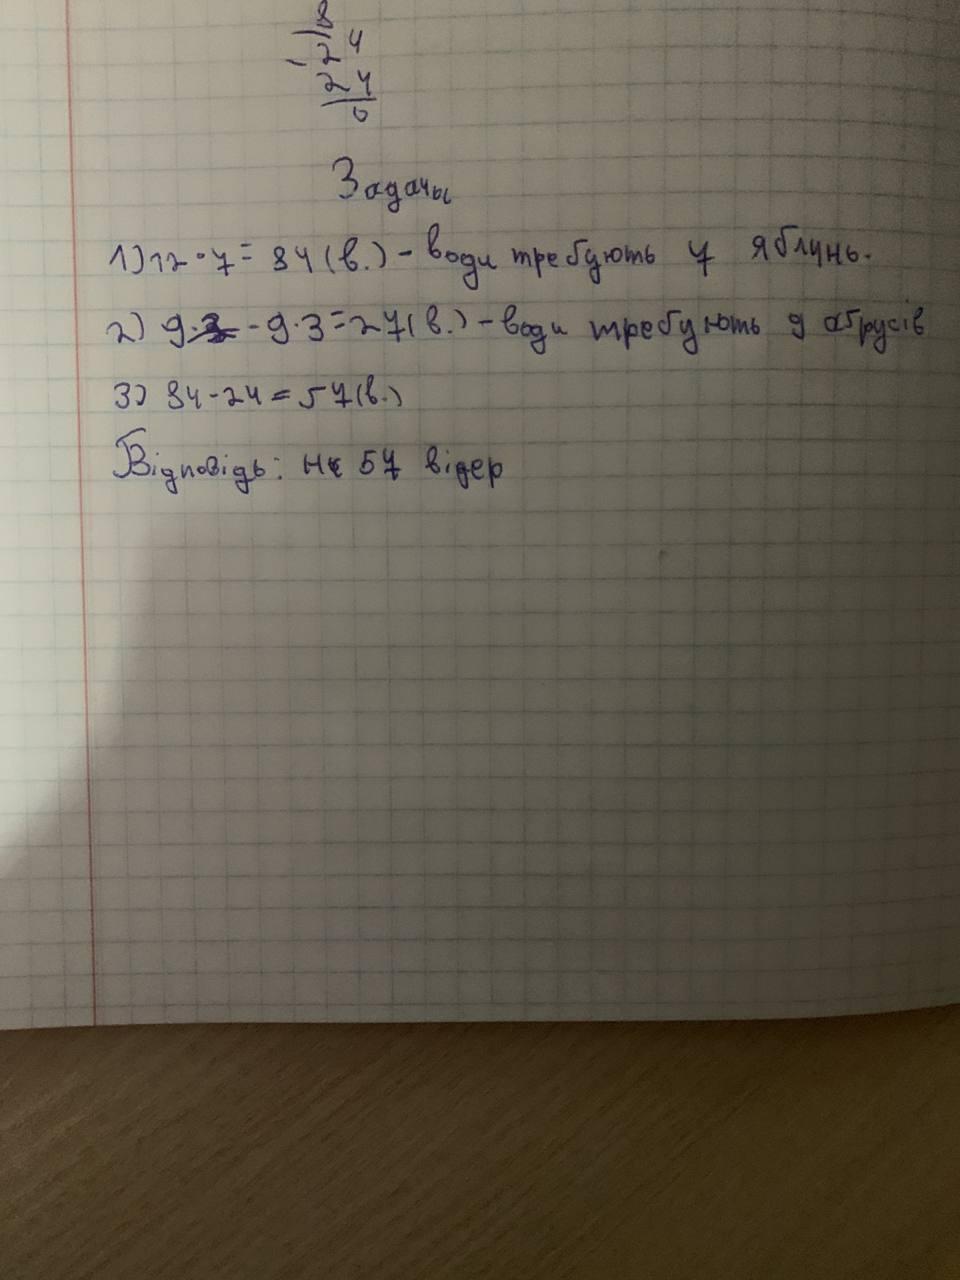 8
- 24
24
0
Задачы
1) 12·7 = 84 (в.) - води требують 7 яблунь.
2) 9·3 - 9·3 = 27 (в.) - води требують 9 абрусів
3) 84 - 24 = 57 (в.)
Відповідь: на 57 відер